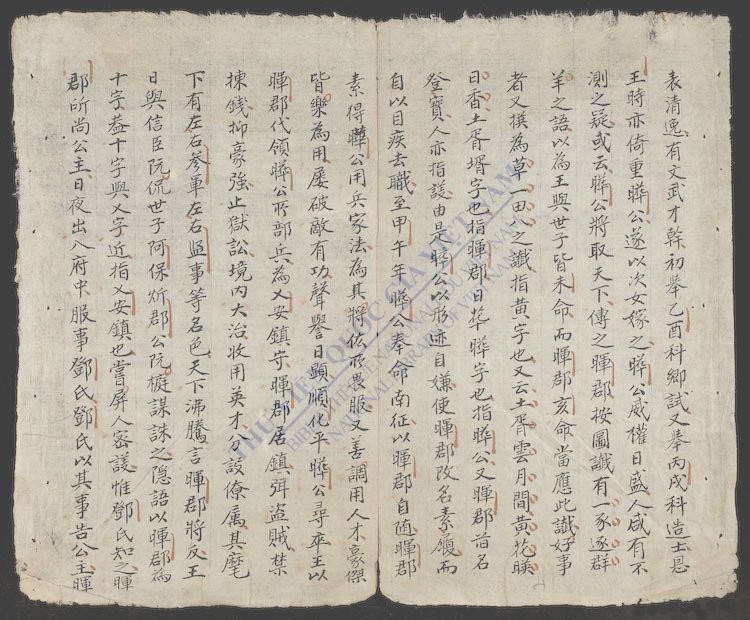 表清逸有文武才幹初舉乙酉科鄉試又舉丙戌科造士恩
王時亦倚重曄公遂以次女嫁之曄公威權日盛人咸有不
測之疑或云曄公將取天下傳之暉郡按圖讖有一豕逐群
羊之語以為王與世子皆未命而暉郡亥命當應此讖好事
者又撰為草一田八之讖指黃字也又云土胥雲月間黃花暎
日香土胥壻字也指暉郡日華曄字也指曄公又暉郡首名
登寶人亦指議由是曄公以形迹自嫌使暉郡改名素履而
自以目疾去職至甲午年曄公奉命南征以暉郡自隨暉郡
素得曄公用兵家法為其將佐所畏服又善調用人才豪傑
皆樂為用屡破敵有功聲譽日顯順化平曄公尋卒王以
暉郡代領曄公所部兵為乂安鎮守暉郡居鎮弭盜賊禁
揀錢抑豪強止獄訟境内大治收用英才分設僚属其麾
下有左右参軍左右监事等名色天下沸騰言暉郡將反王
日與信臣阮侃世子阿保炘郡公阮梃謀誅之隱語以暉郡為
十字葢十字與乂字近指乂安鎮也嘗屏人密議惟鄧氏知之暉
郡所尚公主日夜出入府中服事鄧氏鄧氏以其事告公主暉
THƯ VIỆN QUỐC GIA VIỆT NAM
BIBLIOTHÈQUE NATIONALE DU VIETNAM
NATIONAL LIBRARY OF VIETNAM